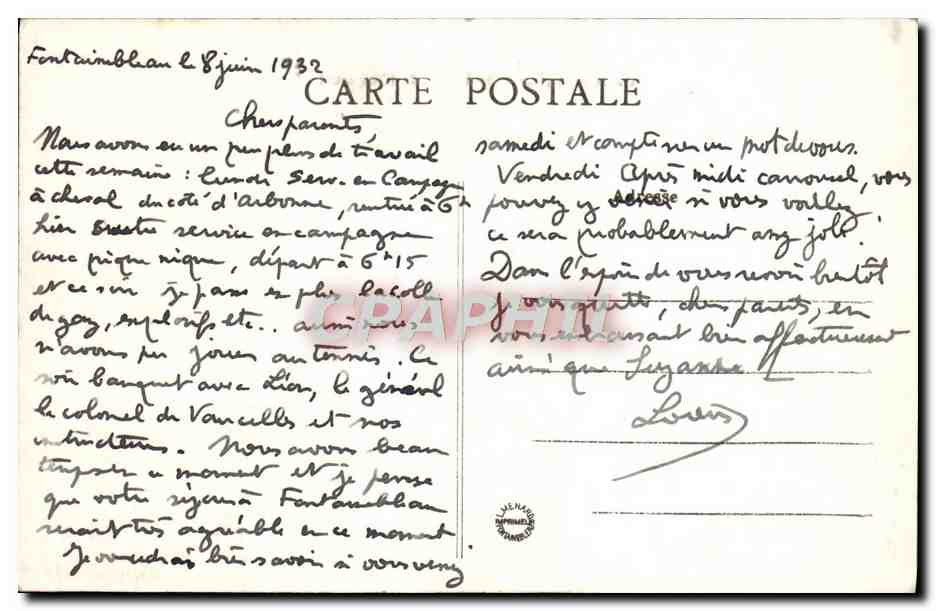 Fontainebleau le 8 juin 1932
CARTE POSTALE
Chers parents,
Nous avons eu un peu plus de travail
cette semaine : lundi Serv. en Campagne
à cheval du coté d'Arbonne, rentrée à 6h
hier service en campagne
avec pique nique, départ à 6h15
et ce soir je passe en plus la colle
de gaz, explosifs etc.. aussi nous
n'avons pu jouer au tennis. Ce
soir banquet avec Lion, le général
le colonel de Vaucelles et nos
instructeurs. Nous avons beau
temps en ce moment et je pense
que votre séjour à Fontainebleau
serait très agréable en ce moment.
Je voudrais bien savoir si vous venez
samedi et compte sur un mot de vous.
Vendredi Après midi carrousel, vous
pouvez y venir si vous voulez,
Adresse
ce sera probablement assez joli.
Dans l'espoir de vous revoir bientôt
je vous quitte, chers parents, en
vous embrassant bien affectueusement
ainsi que Suzanne
Louis
L. MENARD
IMPRIMEUR
FONTAINEBLEAU
CPAPHIL